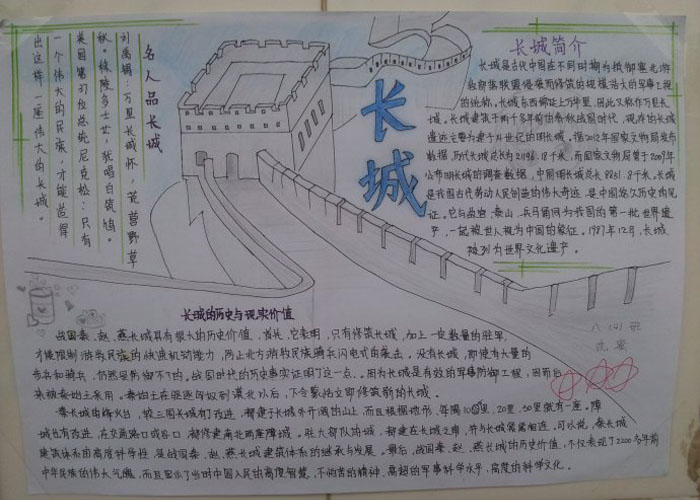 长城
名人品长城
刘禹锡：万里长城怀，荒营野草
秋。秣陵多士女，犹唱白符鸠。
美国第37位总统尼克松：只有
一个伟大的民族，才能造得
出这样一座伟大的长城。
长城简介
长城是古代中国在不同时期为抵御塞北游
牧部落联盟侵袭而修筑的规模浩大的军事工程
的统称。长城东西绵延上万华里，因此又称作万里长
城。长城建筑于两千多年前的春秋战国时代，现存的长城
遗迹主要为建于14世纪的明长城。据2012年国家文物局发布
数据，历代长城总长为21196.18千米，而国家文物局曾于2009年
公布明长城的调查数据，中国明长城总长8851.8千米。长城
是我国古代劳动人民创造的伟大奇迹，是中国悠久历史的见
证。它与故宫、泰山、兵马俑同为我国的第一批世界遗
产，一起被世人视为中国的象征。1987年12月，长城
被列为世界文化遗产。
长城的历史与现实价值
战国秦、赵、燕长城具有很大的历史价值。首先，它表明，只有修筑长城，加上一定数量的驻军，
才能限制游牧民族的快速机动能力，防止北方游牧民族骑兵闪电式的袭击。没有长城，即使有大量的
步兵和骑兵，仍然是防御不了的。战国时代的历史事实证明了这一点。因为长城是有效的军事防御工程，因而后
来被秦始皇采用。秦始皇在驱逐匈奴到漠北以后，下令蒙恬立即修筑新的长城。
秦长城的烽火台，较三国长城有了改进，都建于长城外开阔的山上，而且根据地形，每隔10里，20里，30里就有一座。障
城也有改进，在交通路口或谷口都修建南北两座障城。驻大部队的城，都建在长城之旁，并与长城紧紧相连。可以说，秦长城
建筑体系的高度科学性，是战国秦、赵、燕长城建筑体系的继承与发展。最后，战国秦、赵、燕长城的历史价值，不仅表现了2200多年前
中华民族的伟大气魄，而且显示了当时中国人民的高度智慧、不怕苦的精神、高超的军事科学水平，高度的科学文化。
八（4）班